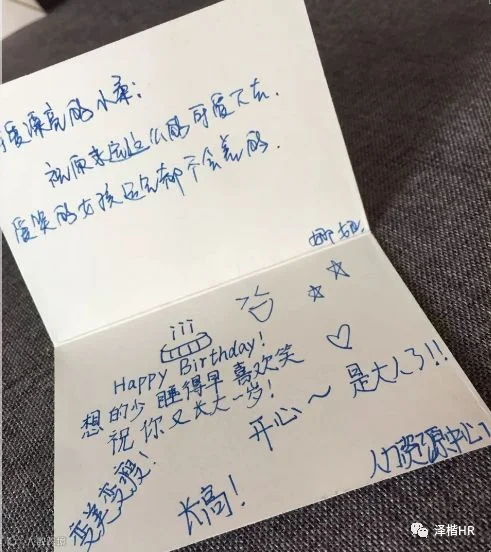 可爱漂亮的小车：
祝原来这么的可爱下去.
爱笑的女孩运气都不会差的.
娜姐.
Happy Birthday!
想的少 睡得早 喜欢笑
祝你又长大一岁!
开心~ 是大人了!!
变美变瘦!
长高!
人力资源中心
泽楷HR